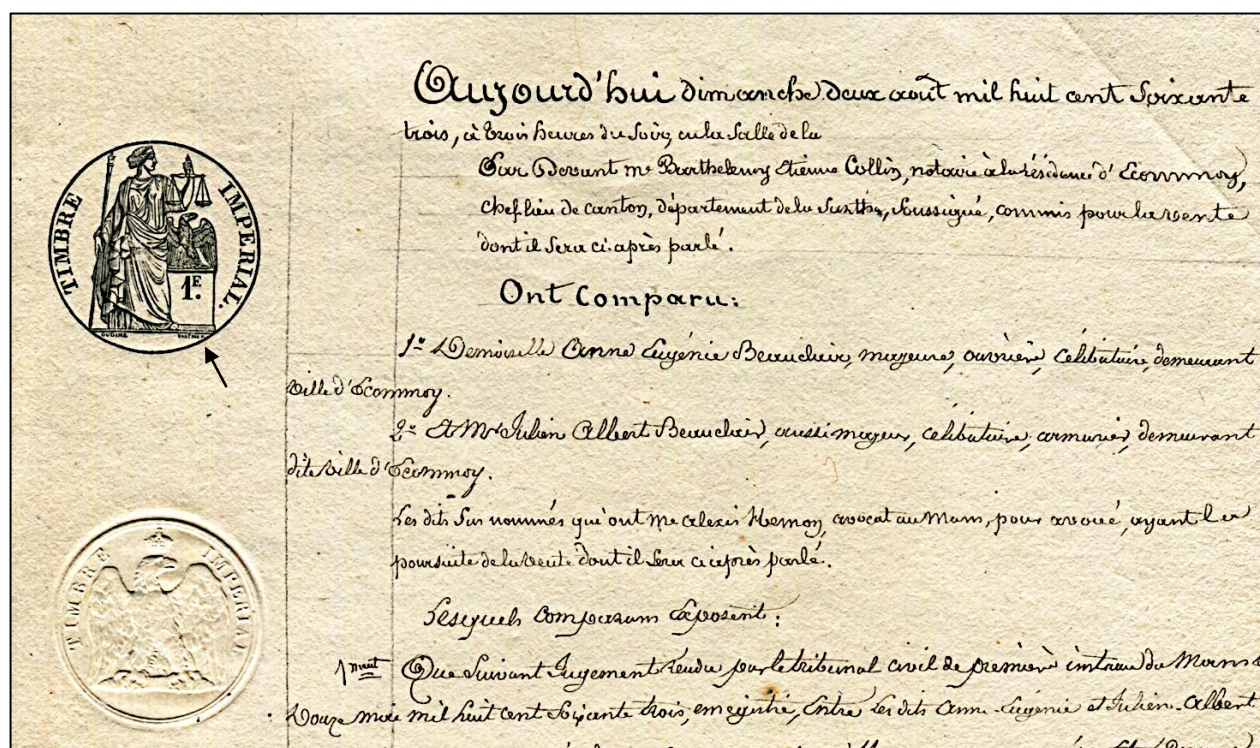 TIMBRE IMPERIAL.
1.E
TIMBRE IMPERIAL
Aujourd'hui dimanche deux aout mil huit cent soixante
trois, à trois heures du soir, en la salle de la
Par Devant me Barthelemy Etienne Collin, notaire à la résidence d'Ecommoy,
chef lieu de canton, département de la Sarthe, soussigné, commis pour la vente
dont il sera ci après parlé.
Ont Comparu:
1º Demoiselle Anne Eugénie Beauclair, majeure, ouvrière, célibataire, demeurant
ville d'Ecommoy.
2º Et Mr Julien Albert Beauclair, aussi majeur, célibataire, armurier, demeurant
dite ville d'Ecommoy.
Les dits sus nommés qui ont me alexis Hemon, avocat au Mans, pour avoué, ayant la
poursuite de la vente dont il sera ci après parlé.
Lesquels comparans exposent:
1ment Que suivant Jugement rendu par le tribunal civil de première du Mans
Douze mai mil huit cent soixante trois, enregistré, Entre les dits Anne-Eugénie et Julien-Albert